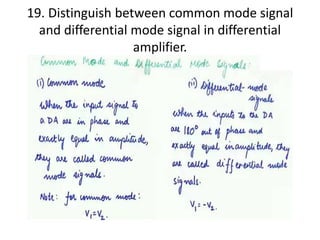 19. Distinguish between common mode signal
and differential mode signal in differential
amplifier.
Common Mode and Differential Mode Signals:
(i) Common mode
When the input signal to
a DA are in phase and
exactly equal in amplitude,
they are called common
mode signals.
Note: for common mode:
V₁=V₂.
(ii) Differential-mode
signals
When the inputs to the DA
are 180° out of phase and
exactly equal in amplitude, they
are called differential mode
signals.
V₁ = -V₂.